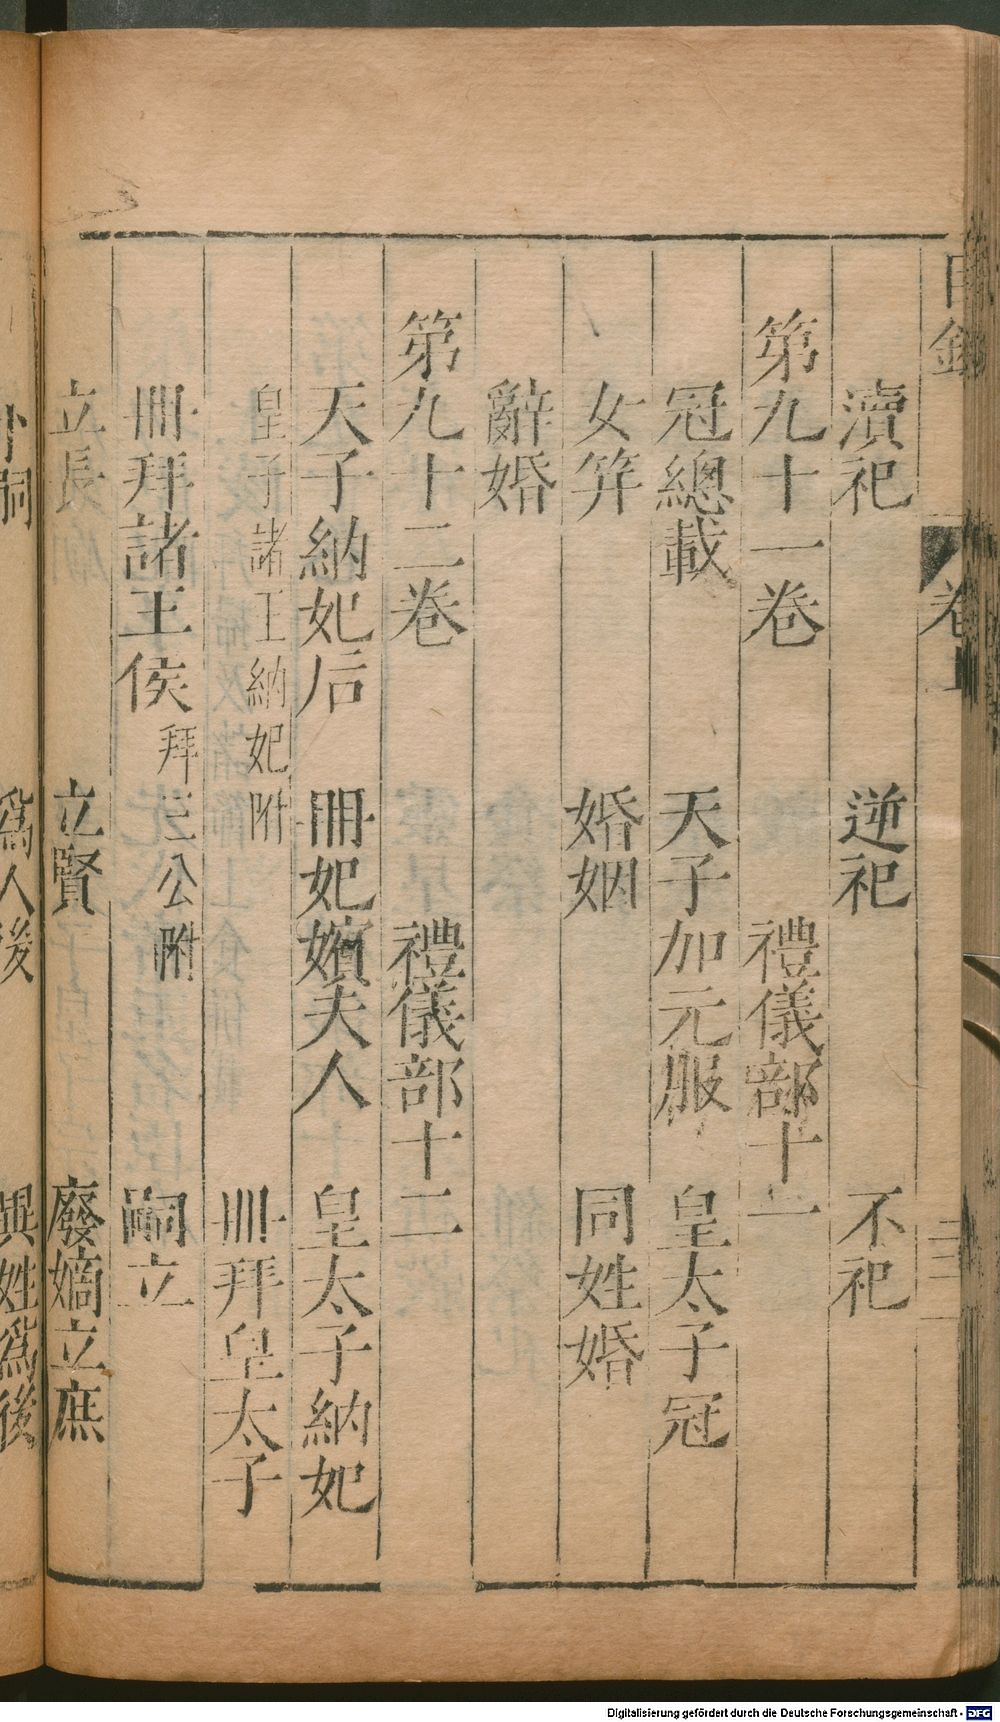 目錄 卷上
瀆祀 逆祀 不祀
第九十一卷 禮儀部十一
冠總載 天子加元服 皇太子冠
女笄 婚姻 同姓婚
辭婚
第九十二卷 禮儀部十二
天子納妃后 冊妃嬪夫人 皇太子納妃
皇子諸王納妃附 冊拜皇太子
冊拜諸王侯 拜三公附 嗣立
立長 立賢 廢嫡立庶
爲人後 異姓爲後
Digitalisierung gefördert durch die Deutsche Forschungsgemeinschaft - DFG